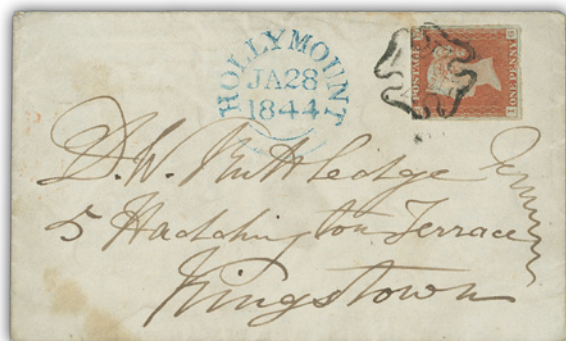 HOLLYMOUNT
JA28
1844
POSTAGE
ONE PENNY
D. W. Ruttledge Esq
5 Haddington Terrace
Kingstown